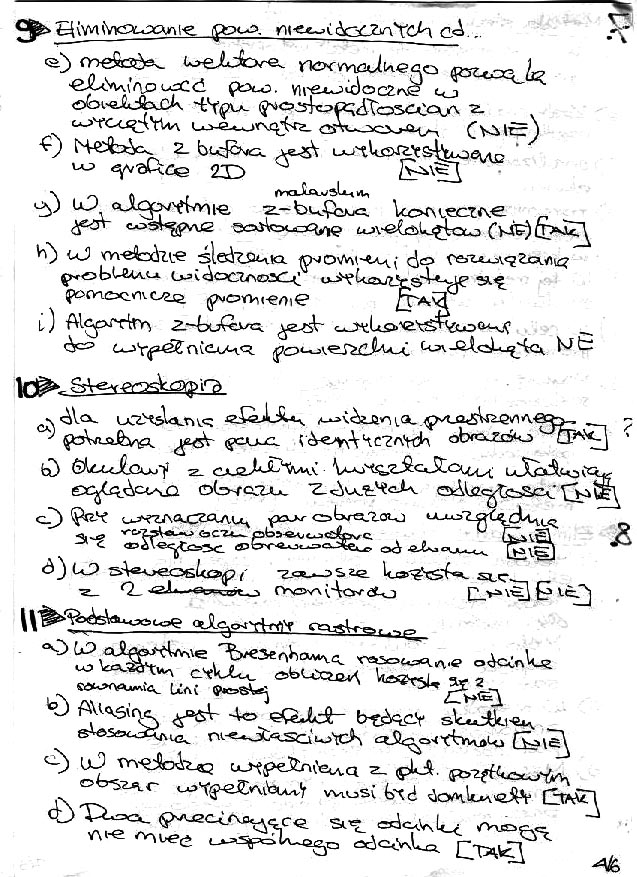 9 Eliminowanie pow. niewidocznych cd...
e) metoda wektora normalnego pozwala
eliminować pow. niewidoczne w
obiektach typu prostopadłościan z
wyciętym wewnątrz otworem (NIE)
f) Metoda z bufora jest wykorzystywana
w grafice 2D [NIE]
malarskim
g) W algorytmie z-bufora konieczne
jest wstępne sortowanie wielokątów (NIE) [TAK]
h) w metodzie śledzenia promieni do rozwiązania
problemu widoczności wykorzystuje się
pomocnicze promienie [TAK]
i) Algorytm z-bufora jest wykorzystywany
do wypełniania powierzchni wielokąta NIE
10 Stereoskopia
a) dla uzyskania efektu widzenia przestrzennego
potrzebna jest para identycznych obrazów [TAK] ?
b) Okulary z ciekłymi kryształami ułatwiają
oglądanie obrazu z dużych odległości [NIE]
c) Przy wyznaczaniu par obrazów uwzględnia
się rozstaw oczu obserwatora [NIE]
odległość obserwatora od ekranu [NIE]
8
d) W stereoskopi zawsze korzysta się
z 2 monitorów [NIE] [NIE]
11 Podstawowe algorytmy rastrowe
a) W algorytmie Bresenhama rysowanie odcinka
w każdym cyklu obliczeń korzysta się z
rownania lini prostej [NIE]
b) Aliasing jest to efekt będący skutkiem
stosowania niewłaściwych algorytmów [NIE]
c) W metodzie wypełniania z pkt. początkowym
obszar wypełniany musi być domknięty [TAK]
d) Dwa przecinające się odcinki mogą
nie mieć wspólnego odcinka [TAK]
4/6